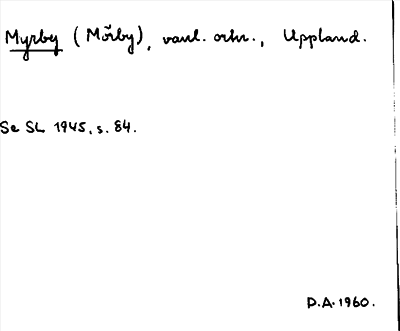 Myrby (Mörby), vanl. ortn., Uppland.
Se SL 1945, s. 84.
D.A. 1960.